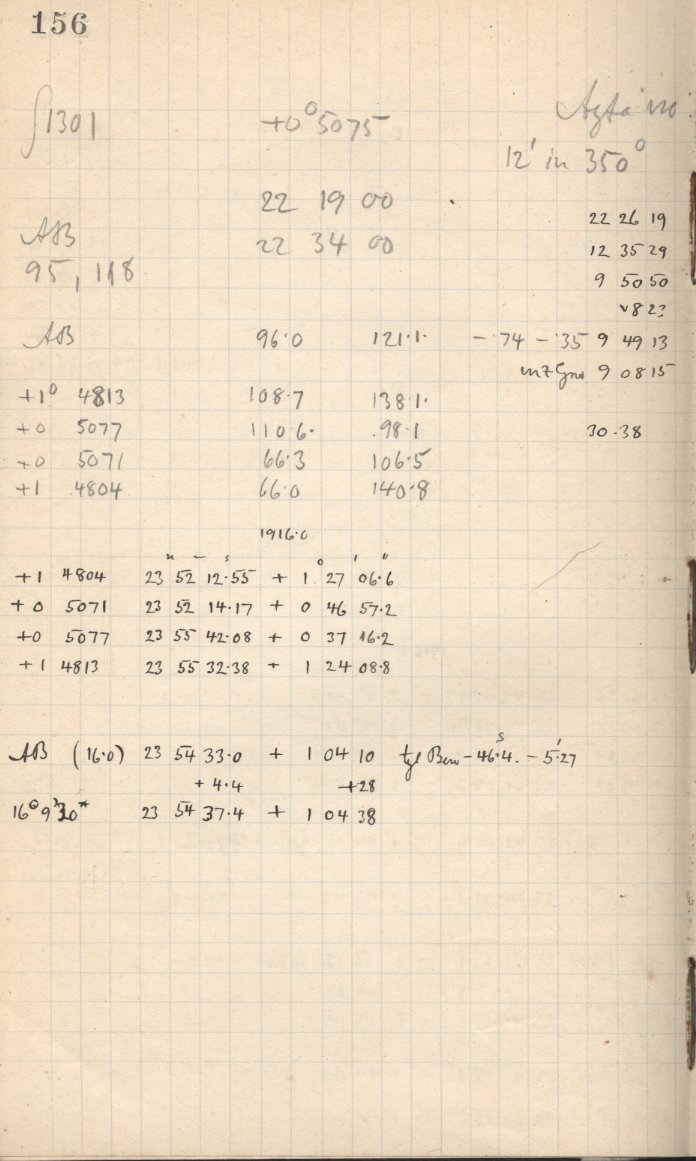 156
∫1301 +0° 5075
12' in 350°
22 19 00
22 26 19
AB 22 34 00
12 35 29
95, 118
9 50 50
823
AB 96.0 121.1 -.74 -.35 9 49 13
9 08 15
+1° 4813 108.7 138.1
+0 5077 110.6 98.1 30.38
+0 5071 66.3 106.5
+1 4804 66.0 140.8
1916.0
h m s ° ' "
+1 4804 23 52 12.55 + 1 27 06.6
+0 5071 23 52 14.17 + 0 46 57.2
+0 5077 23 55 42.08 + 0 37 16.2
+1 4813 23 55 32.38 + 1 24 08.8
AB (16.0) 23 54 33.0 + 1 04 10 tgl Bew -46.4s -5'.27
+4.4 +28
23 54 37.4 + 1 04 38